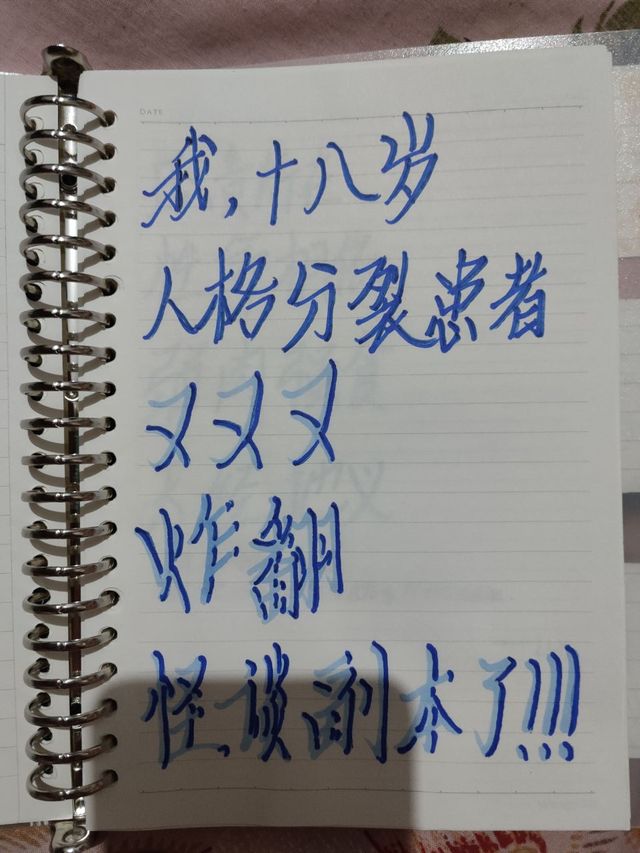 DATE
我,十八岁
人格分裂患者
又又又
炸翻
怪谈副本了!!!